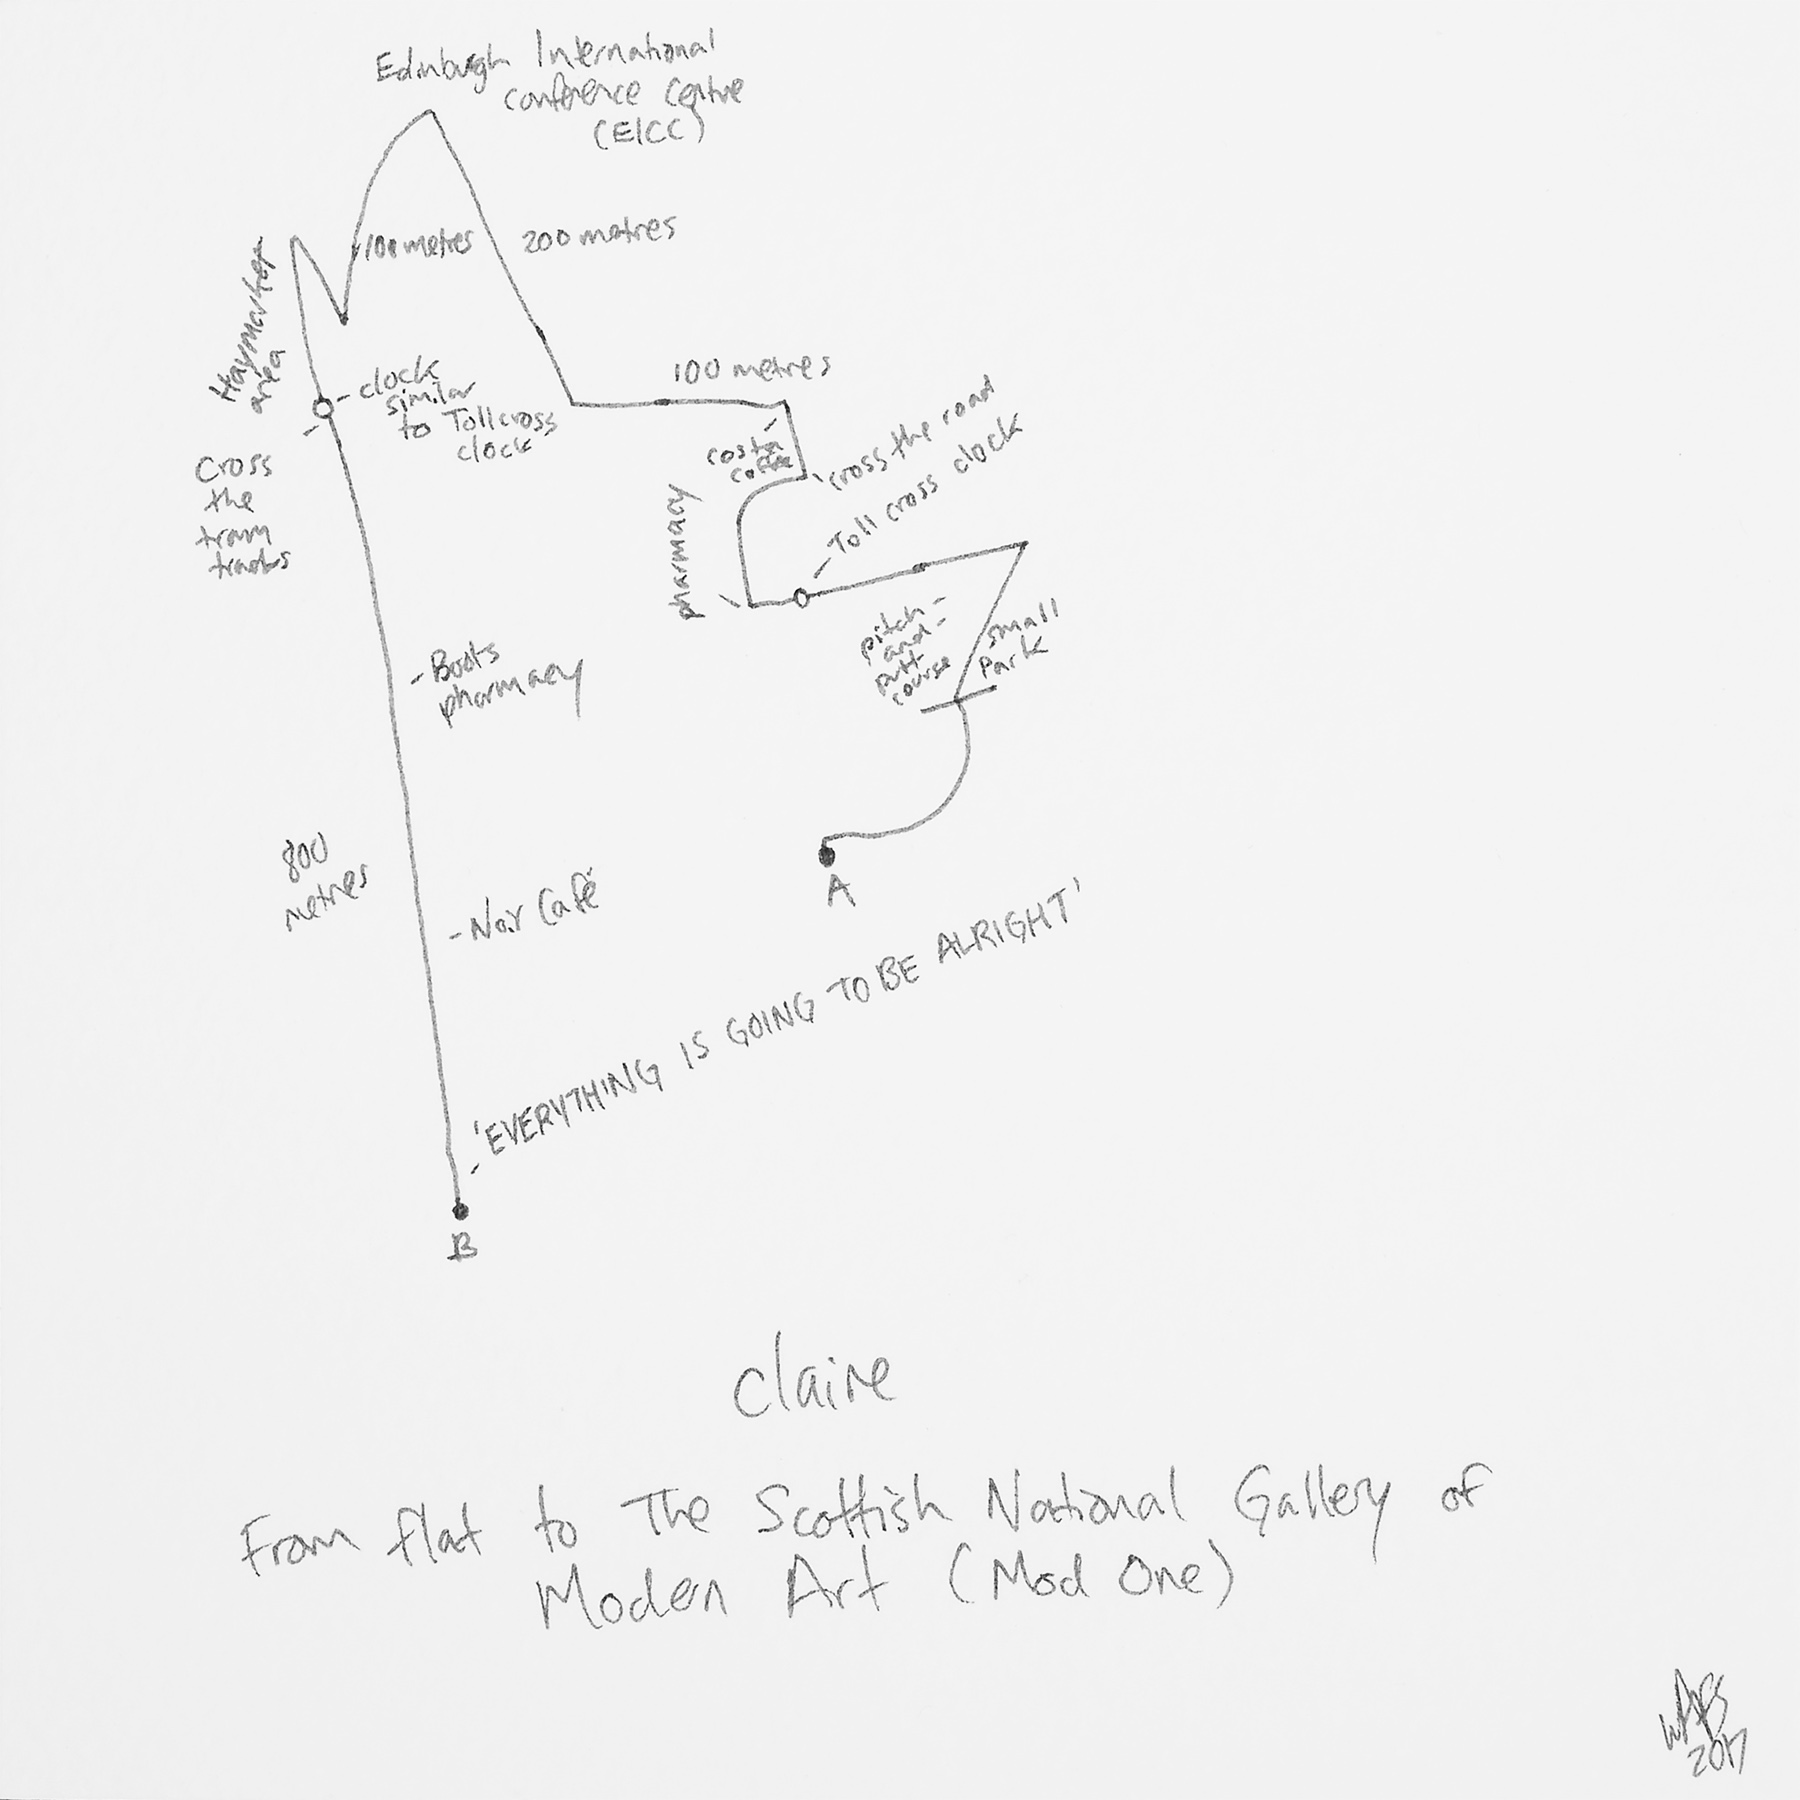 Edinburgh International
Conference Centre
(EICC)
100 metres
200 metres
Haymarket
area
clock
similar
to Tollcross
clock
100 metres
costa
coffee
cross the road
Toll cross clock
Cross
the
tram
tracks
pharmacy
pitch-
and-
putt
course
small
park
Boots
pharmacy
800
metres
Noir Café
A
'EVERYTHING IS GOING TO BE ALRIGHT'
B
Claire
From flat to The Scottish National Gallery of
Modern Art (Mod One)
2017